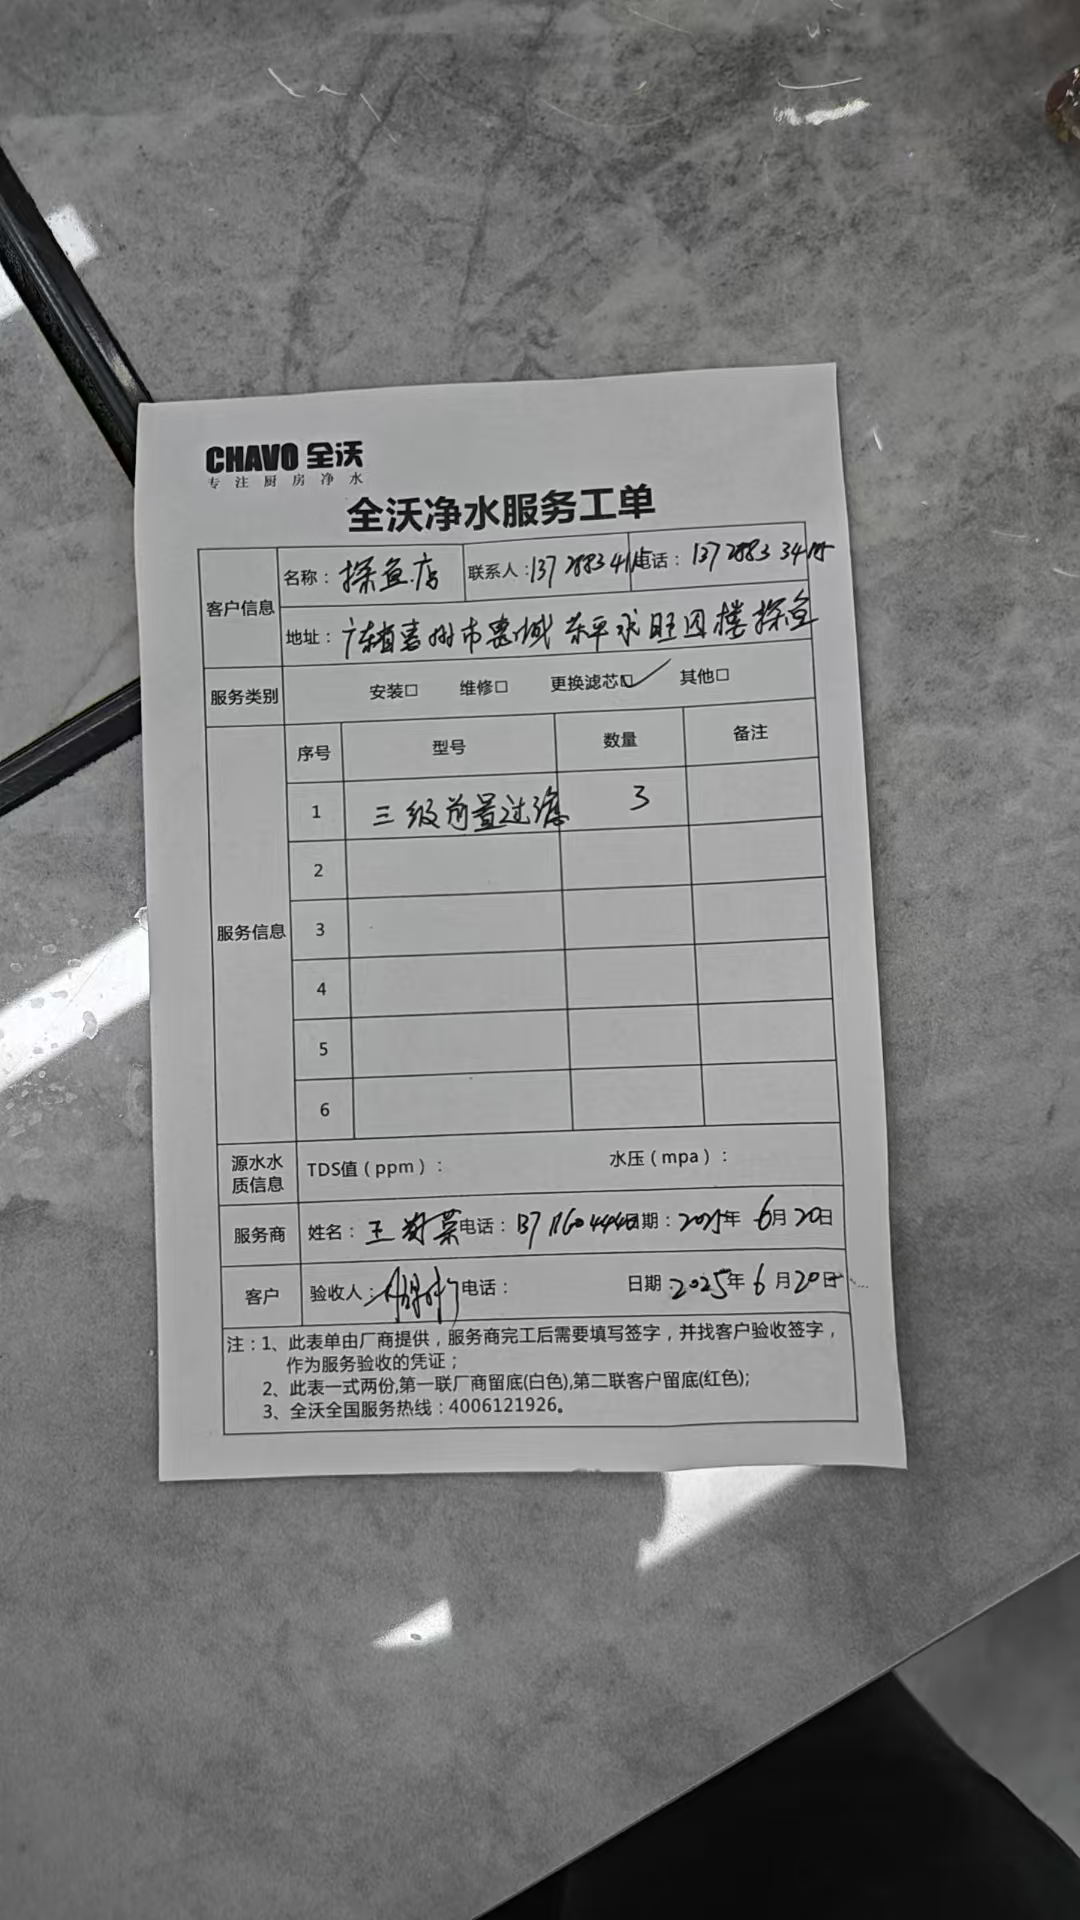 CHAVO 全沃
专注厨房净水
全沃净水服务工单
客户信息
名称：探鱼店 联系人： 电话：
地址：广东省惠州市惠城 东平 旺 四楼探鱼
服务类别 安装□ 维修□ 更换滤芯☑ 其他□
服务信息
序号 型号 数量 备注
1 三级前置过滤 3
2
3
4
5
6
源水水质信息 TDS值（ppm）： 水压（mpa）：
服务商 姓名：王 电话： 日期：2025年 6月20日
客户 验收人： 电话： 日期：2025年 6月20日
注：1、此表单由厂商提供，服务商完工后需要填写签字，并找客户验收签字，
作为服务验收的凭证；
2、此表一式两份,第一联厂商留底(白色),第二联客户留底(红色);
3、全沃全国服务热线：4006121926。